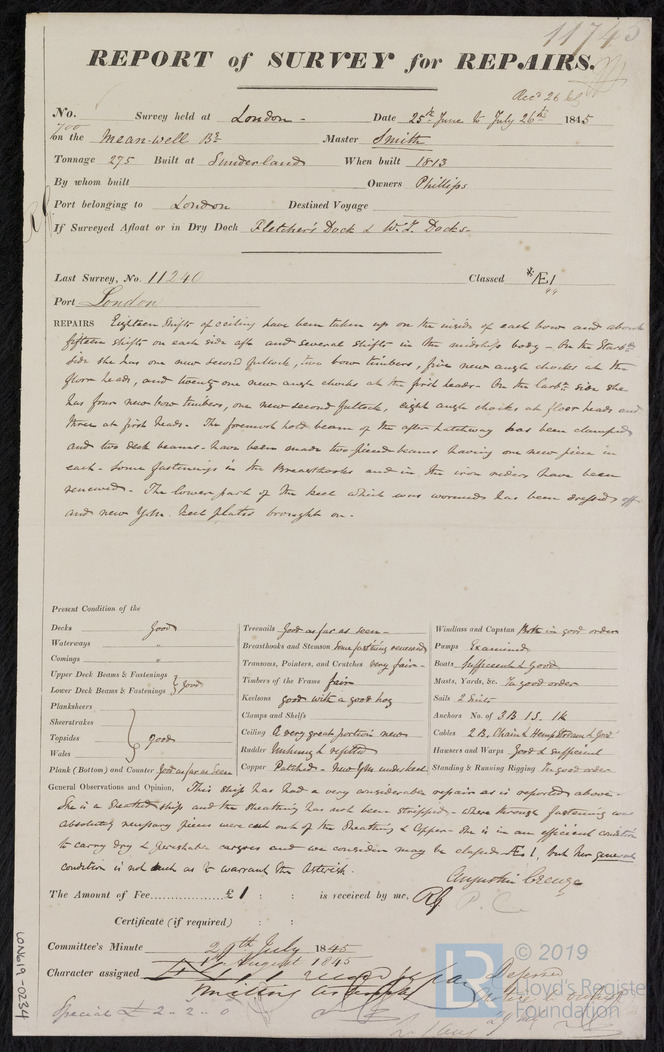 11743
REPORT of SURVEY for REPAIRS.
No. 700 Survey held at London - Date 25th June to July 26th 1845
on the Mean-well Bk Master Smith
Tonnage 275 Built at Sunderland When built 1813
By whom built Owners Phillips
Port belonging to London Destined Voyage
If Surveyed Afloat or in Dry Dock Fletcher's Dock & W.I. Docks.
Last Survey, No. 11240 Classed *Æ1
Port London 44
REPAIRS Eighteen shifts of ceiling have been taken up on the inside of each bow and about
fifteen shifts on each side aft and several shifts in the midship body - On the Starbd
side she has one new second futtock, two bow timbers, five new angle chocks at the
floor heads, and twenty one new angle chocks at the first heads - On the Larbd side she
has four new bow timbers, one new second futtock, eight angle chocks at floor heads and
three at first heads. The foremost hold beam of the after hatchway has been clamped
and two deck beams have been made two pieced beams having one new piece in
each - Some fastenings in the Breasthooks and in the iron riders have been
renewed - The lower part of the keel which was wormed has been dressed off
and new Y.M. keel plates brought on -
Present Condition of the
Decks good
Waterways "
Comings "
Upper Deck Beams & Fastenings
Lower Deck Beams & Fastenings } good
Planksheers
Sheerstrakes
Topsides } good
Wales
Plank (Bottom) and Counter Good as far as Seen
Treenails Good as far as seen -
Breasthooks and Stemson Some fastening renewed
Transoms, Pointers, and Crutches very fair -
Timbers of the Frame fair
Keelsons good with a good hog
Clamps and Shelfs
Ceiling A very great portion new
Rudder Unhung & refitted
Copper Patched - New Y.M. under keel
Windlass and Capstan Both in good order
Pumps Examined
Boats Sufficient & good
Masts, Yards, &c. In good order
Sails 2 Suits
Anchors No. of 3B 1S. 1K
Cables 2 B. Chain & Hemp Stream & Good
Hawsers and Warps Good & sufficient
Standing & Running Rigging In good order
General Observations and Opinion, This ship has had a very considerable repair as is reported above -
She is a Sheathed ship and the sheathing has not been stripped - Where through fastening was
absolutely necessary pieces were cut out of the Sheathing & Copper - She is in an efficient condition
to carry dry & perishable cargoes and we consider may be classed Æ1, but her general
condition is not such as to warrant the Asterisk.
Augustin Creuze
The Amount of Fee £ 1 : : is received by me,
P. C.
Certificate (if required) : :
Committee's Minute 29th July 1845
1st August 1845
Character assigned Deferred
Special £ 2 - 2 - 0
LON619-0234
© 2019
Lloyd's Register
Foundation